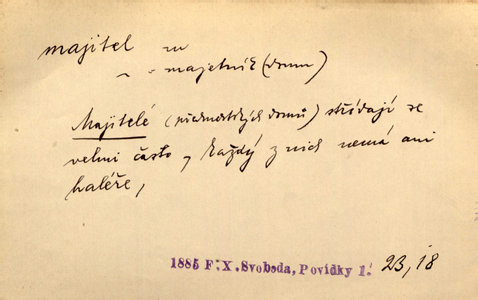 majitel m
majetník (domu)
Majitelé (předměstských domů) střídají se
velmi často, každý z nich nemá ani
haléře,
1885 F. X. Svoboda, Povídky 1. 23,18